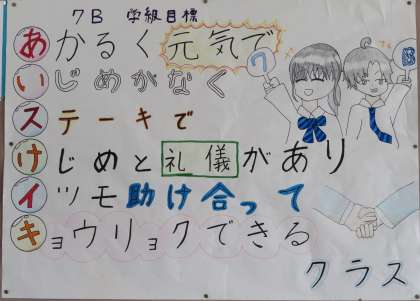 7B 学級目標
あかるく元気で
いじめがなく
ステーキで
けじめと礼儀があり
イツモ助け合って
キョウリョクできる
クラス
7
B